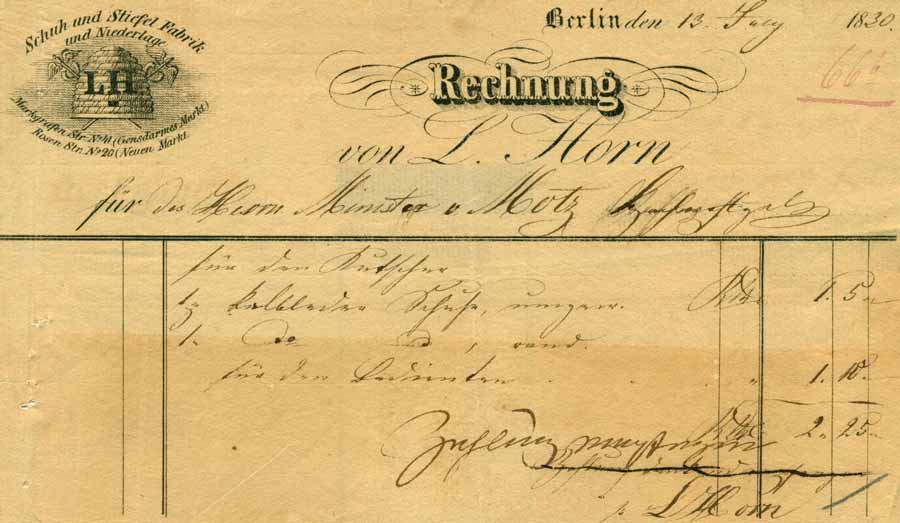 Schuh und Stiefel Fabrik
und Niederlage
LH
Markgrafen Str. No 41 (Gensdarmes Markt)
Rosen Str. No 20 (Neuen Markt
Berlin den 13. July 1830.
66
Rechnung
von L. Horn
für des Herrn Minister v Motz
für den Kutscher
1 kalbleder Schuhe, 1. 5
1. do do, rand.
für den Bedienten . . " 1. 10.
2. 25
Zahlung empfangen
L Horn